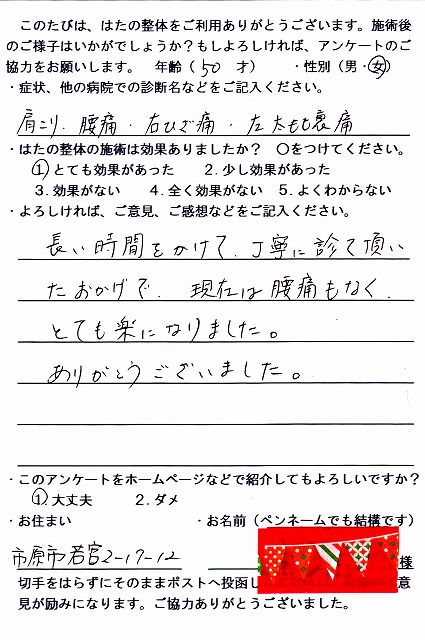 このたびは、はたの整体をご利用ありがとうございます。施術後
のご様子はいかがでしょうか？もしよろしければ、アンケートのご
協力をお願いします。 年齢（ 50 才） ・性別（男・女）
・症状、他の病院での診断名などをご記入ください。
肩こり、腰痛・右ひざ痛・左太もも裏痛
・はたの整体の施術は効果ありましたか？ ○をつけてください。
1 とても効果があった 2. 少し効果があった
3. 効果がない 4. 全く効果がない 5. よくわからない
・よろしければ、ご意見、ご感想などをご記入ください。
長い時間をかけて、丁寧に診て頂い
たおかげで、現在は腰痛もなく、
とても楽になりました。
ありがとうございました。
・このアンケートをホームページなどで紹介してもよろしいですか？
1 大丈夫 2. ダメ
・お住まい ・お名前（ペンネームでも結構です）
市原市若宮2-17-12 様
切手をはらずにそのままポストへ投函し 意
見が励みになります。ご協力ありがとうございました。